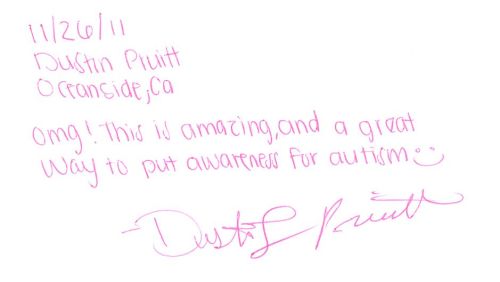 11/26/11
Dustin Pruitt
Oceanside, Ca
Omg! This is amazing, and a great
way to put awareness for autism
- Dustin Pruitt